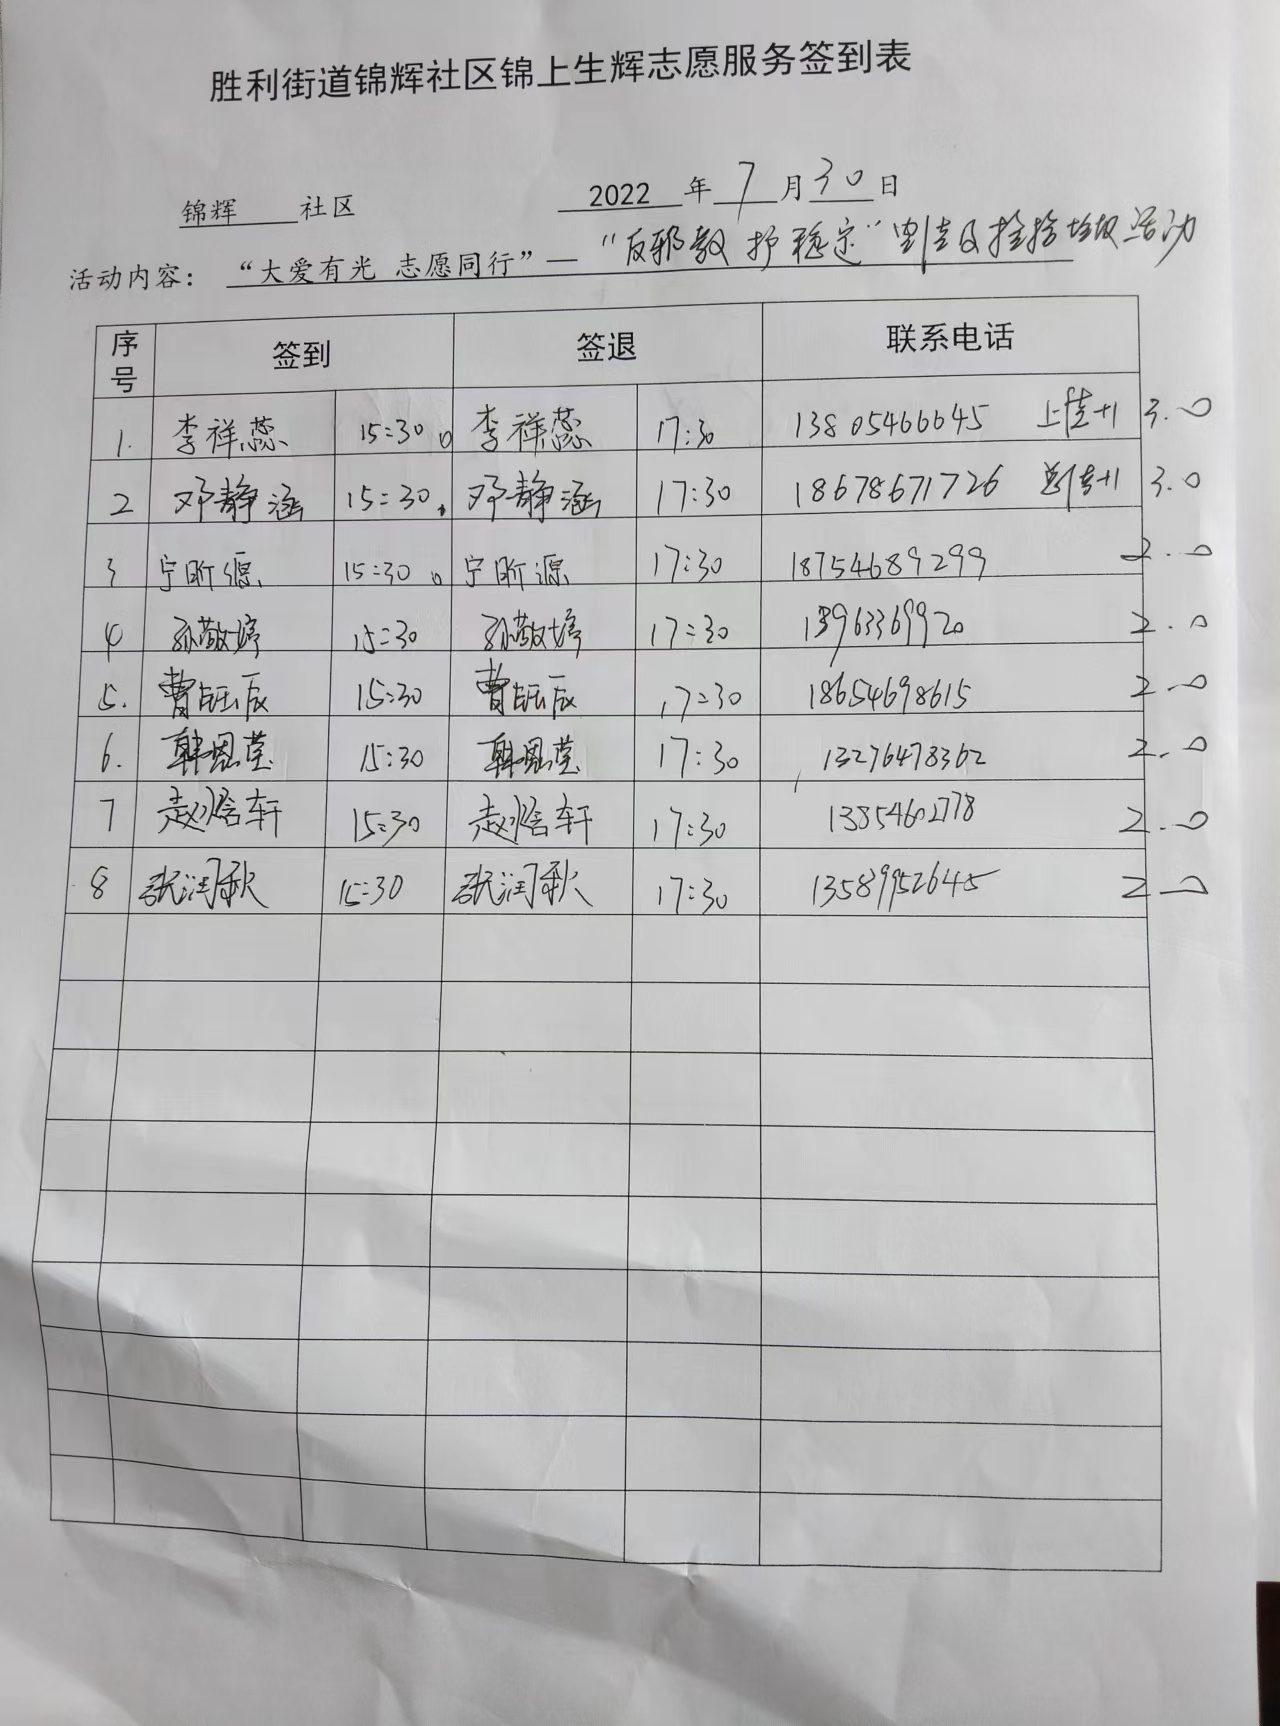 胜利街道锦辉社区锦上生辉志愿服务签到表
锦辉 社区 2022 年 7 月 30 日
活动内容： “大爱有光 志愿同行”— “反邪教 护稳定” 宣传及捡拾垃圾活动
序号 签到 签退 联系电话
1. 李祥蕊 15:30 李祥蕊 17:30 13805466645 3.0
2 邓静涵 15:30 邓静涵 17:30 18678671726 3.0
3 宁昕源 15:30 宁昕源 17:30 18754689299 2.0
4 孙敬婷 15:30 孙敬婷 17:30 13963369920 2.0
5. 曹钰辰 15:30 曹钰辰 17:30 18654698615 2.0
6. 韩恩莹 15:30 韩恩莹 17:30 13276478362 2.0
7 赵焓轩 15:30 赵焓轩 17:30 13854602778 2.0
8 张润秋 15:30 张润秋 17:30 13589952645 2.0